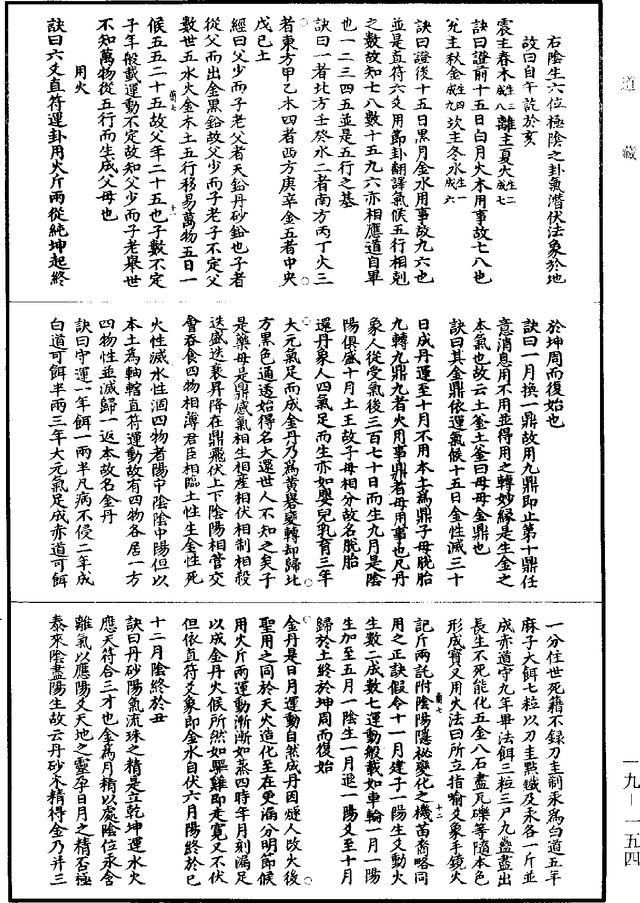 道藏
右陰生六位極陰之卦氣潛伏法象於地
故曰自午訖於亥
震主春木成生八三離主夏火成生七二
兌主秋金成生九四坎主冬水成生六一
訣曰證前十五日白月火木用事故七八也
訣曰證後十五日黑月金水用事故九六也
並是直符六爻用節卦翻譯氣候五行相剋
之數故知七八數十五九六亦相應道自畢
也一二三四五並是五行之基
訣曰一者北方壬癸水二者南方丙丁火三
者東方甲乙木四者西方庚辛金五者中央
戊己土
經曰父少而子老父者天鉛丹砂鉛也子者
從父而出金黑鉛故父少而子老子不定父
數世五水火金木土五行移易萬物五日一
候五五二十五故父年二十五也子數不定
子年般載運動不定故知父少而子老舉世
不知萬物從五行而生成父母也
用火
訣曰六爻直符運卦用火斤兩從純坤起終
於坤周而復始也
訣曰一月換一鼎故用九鼎即止第十鼎任
意消息用不用並得用之轉妙緣是生金之
本氣也故云土釜土釜曰母母金鼎也
訣曰其金鼎依運氣候十五日金性滅三十
日成丹運至十月不用本土為鼎子母脫胎
九轉九鼎九者火用事鼎者母用事也凡丹
象人從受氣後三百七十日而生九月是陰
陽俱盛十月土王故子母相分故名脫胎
還丹象人四氣足而生亦如嬰兒乳育三年
大元氣足而成金丹乃為黃轝變轉却歸北
方黑色通透始得名大還世人不知之矣子
是藥母是鼎感氣相生相產相伏相制相殺
迭盛迭衰昇降在鼎飛伏上下陰陽相管交
會吞食四物相薄君臣相臨土性生金性死
火性滅水性涸四物者陽中陰陰中陽但以
本土為軸轄直符運動故有四物各居一方
四物性並滅歸一返本故名金丹
訣曰守運一年餌一兩半凡病不侵二年成
白道可餌半兩三年大元氣足成赤道可餌
一分住世死籍不錄刀圭制汞為白道五年
麻子大餌七粒以刀圭點鐵及汞各一斤並
成赤道守九年畢法餌三粒三尸九蠱盡出
長生不死能化五金八石盡瓦礫等隨本色
形成寶又用火法曰所立指喻爻象手鏡火
記斤兩託附陰陽隱祕變化之機苗喬略同
用之正訣假令十一月建子一陽生爻動火
生數二成數七運動般載如車輪一月一陽
生加至五月一陰生一月退一陽爻至十月
歸於土終於坤周而復始
金丹是日月運動自然成丹因燧人改火後
聖用之同於天火造化至在更漏分明節候
用火斤兩運動漸漸如蒸四時年月刻漏足
以成金丹火候所然如驟難即走寬又不伏
但依直符爻象即金水自伏六月陽終於巳
十二月陰終於丑
訣曰丹砂陽氣流珠之精是立乾坤運水火
應天符合三才也金為月精以處陰位汞含
離氣以應陽爻天地之靈孕日月之精否極
泰來陰盡陽生故云丹砂木精得金乃并三
一九—一五四